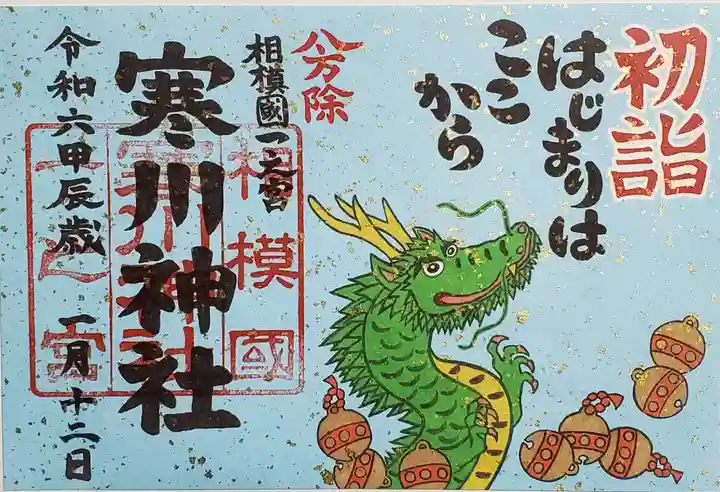 初詣
はじまりは
ここ
から
八方除
相模國一之宮
寒川神社
相模國
一之宮
寒川神社
令和六甲辰歳 一月十二日